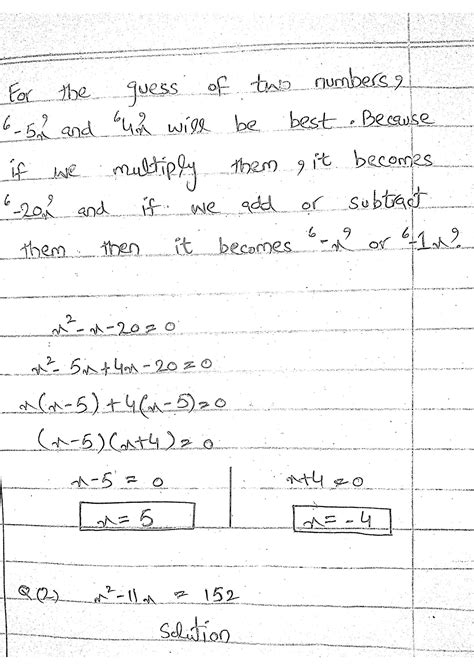 For the guess of two numbers,
‘-5x’ and ‘4x’ will be best. Because
if we multiply them, it becomes
‘-20x’ and if we add or subtract
them then it becomes ‘-x’ or ‘-1x’.
x²-x-20=0
x²-5x+4x-20=0
x(x-5)+4(x-5)=0
(x-5)(x+4)=0
x-5=0 x+4=0
x=5 x=-4
Q(2) x²-11x = 152
Solution